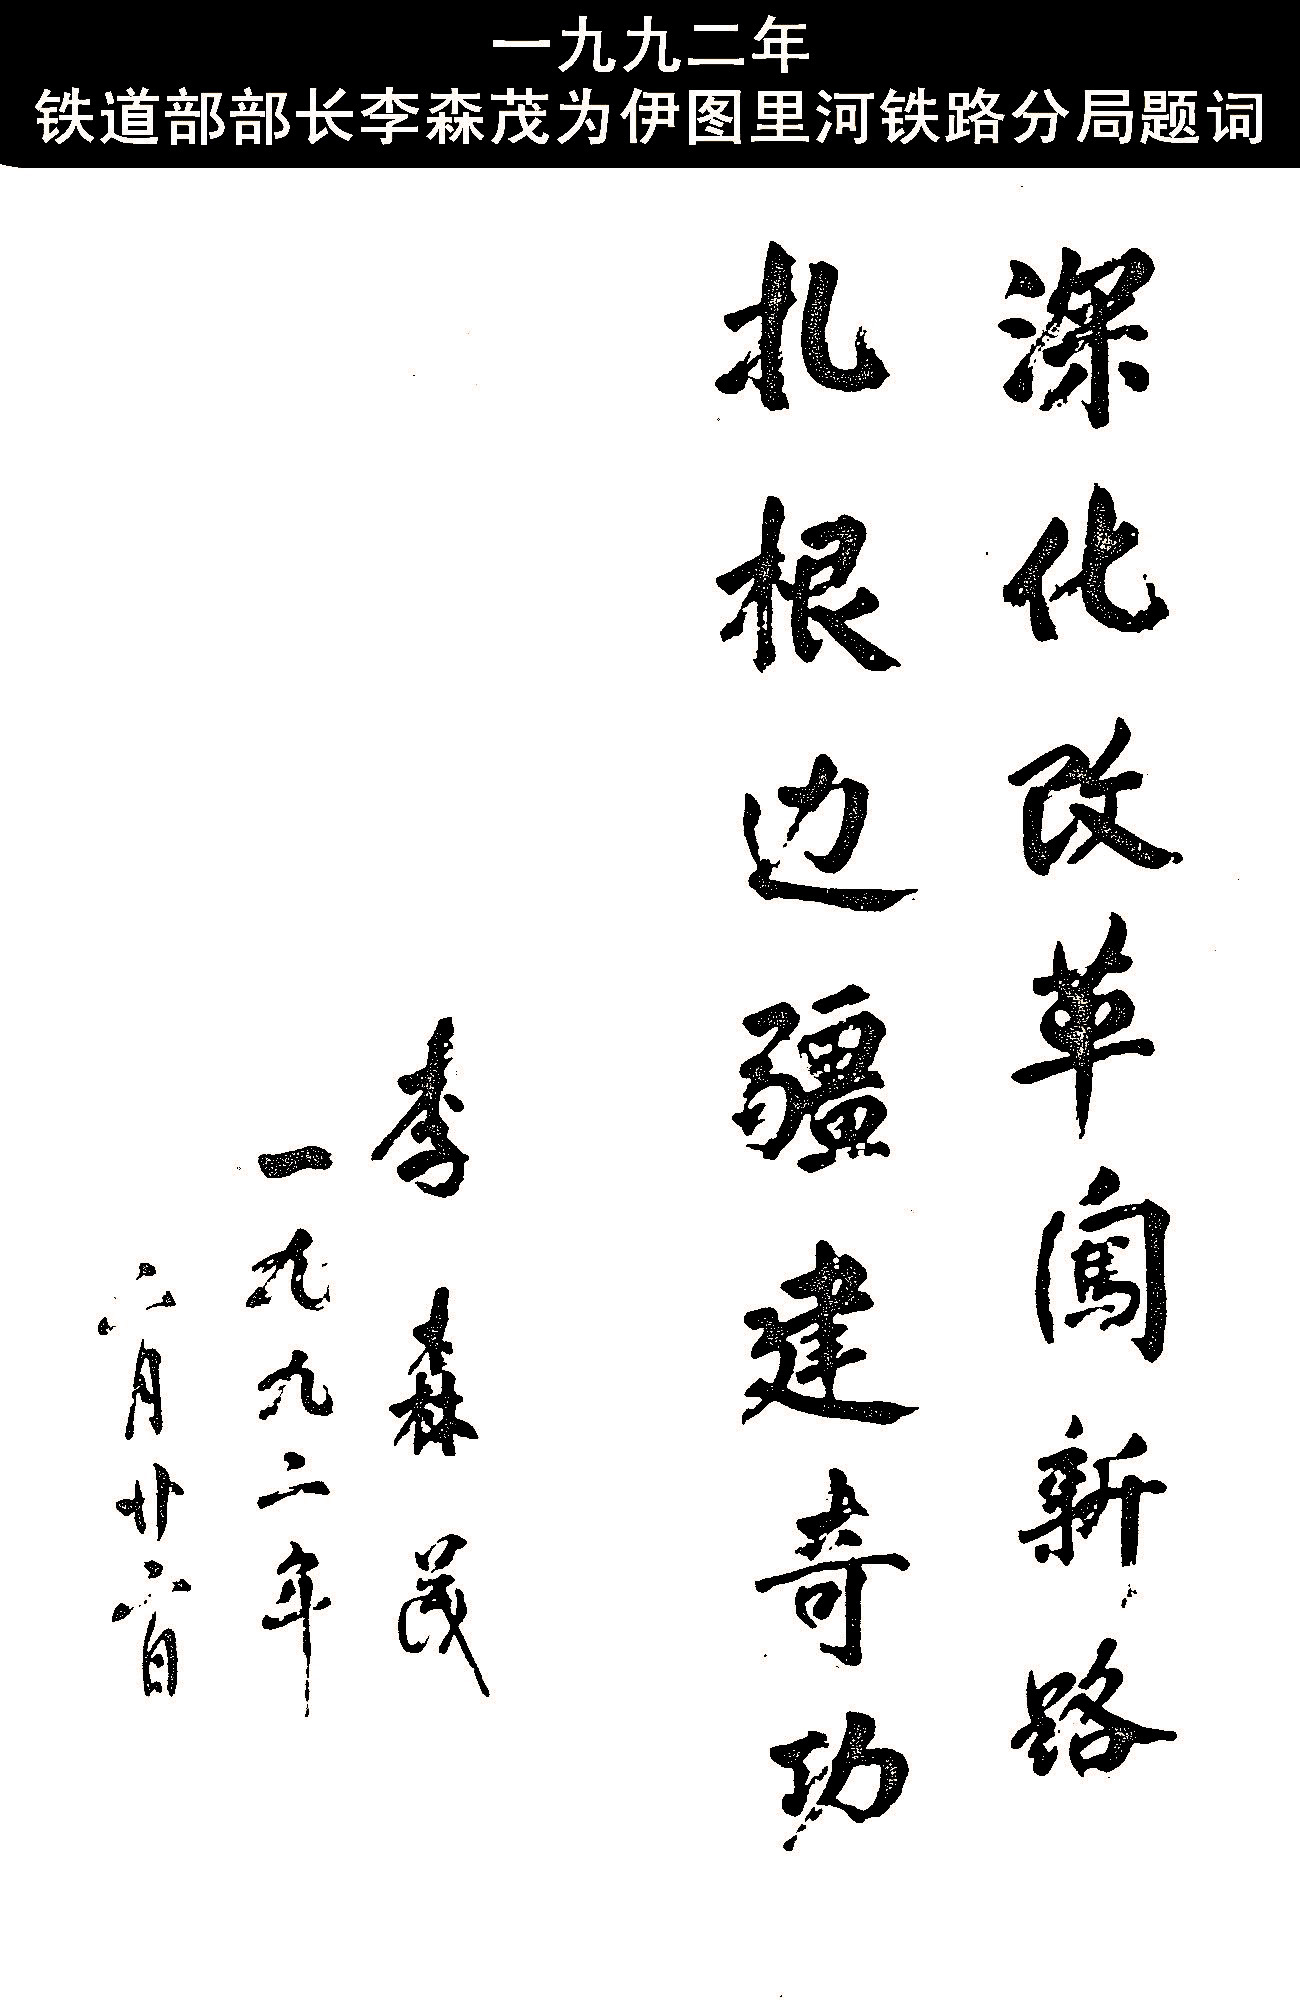 一九九二年
铁道部部长李森茂为伊图里河铁路分局题词
深化改革闯新路
扎根边疆建奇功
李森茂
一九九二年
六月廿六日